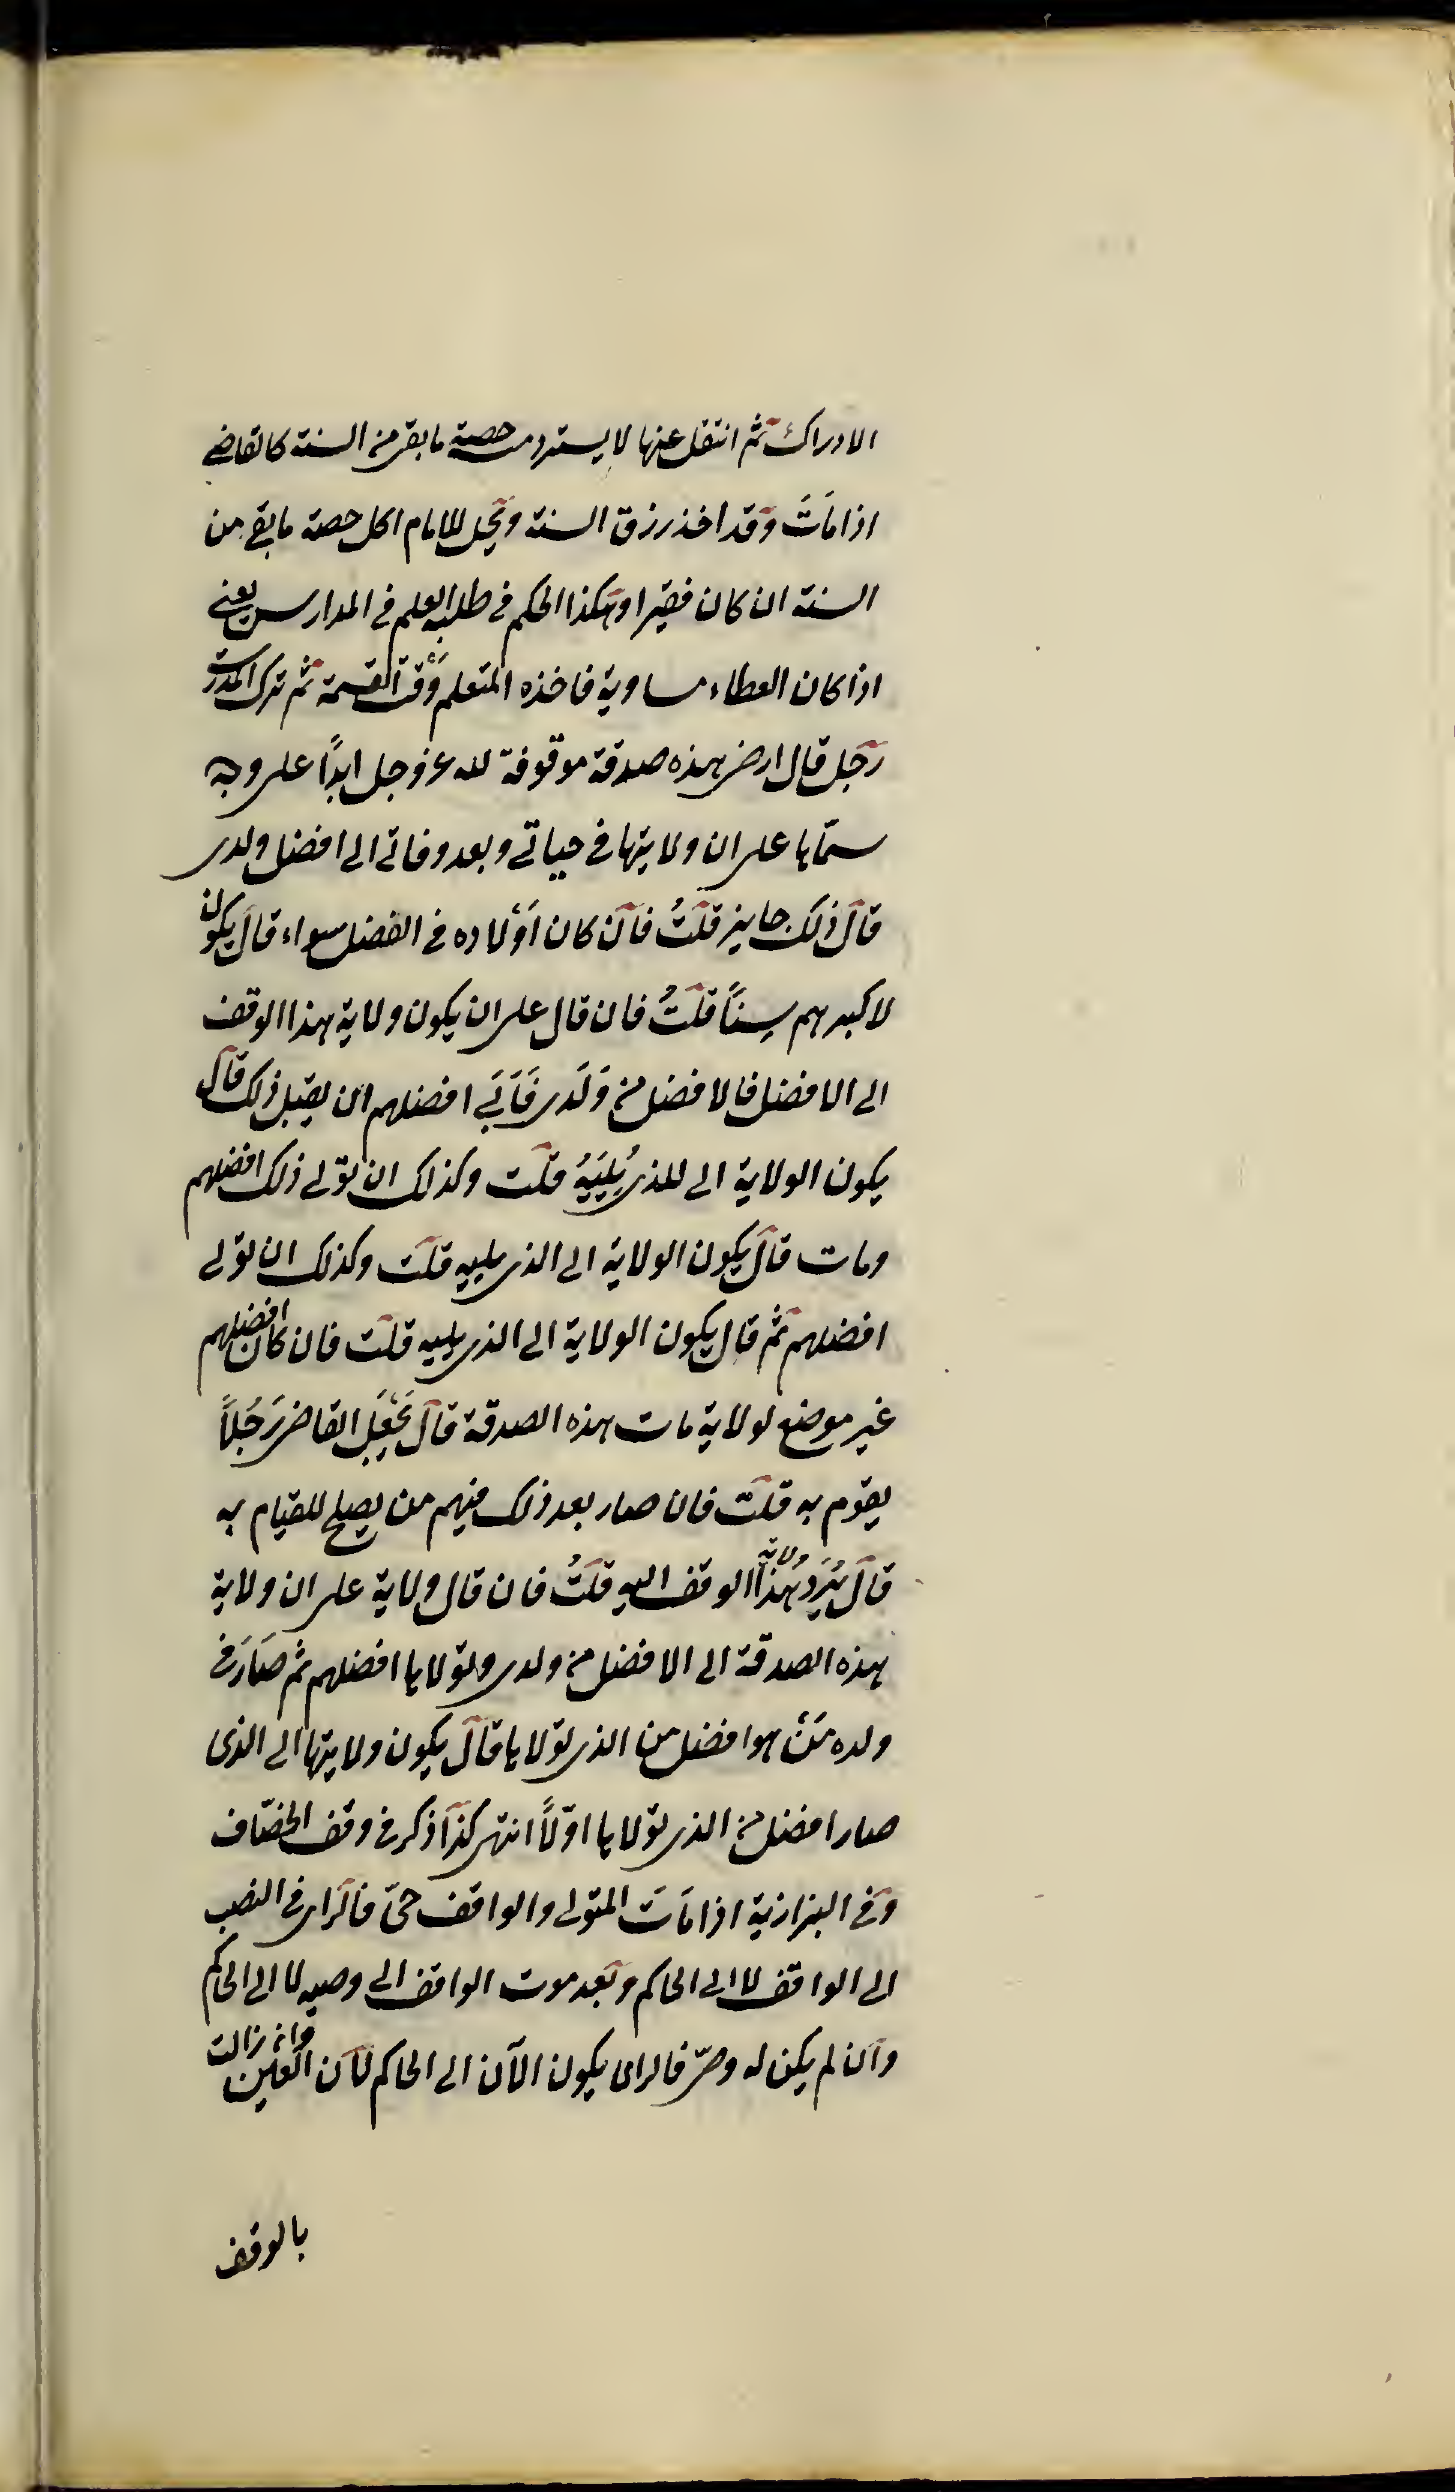 الادراك ثم انتقل عنها لا يسترد منه حصة ما بقى من السنة كالقاضي
اذا مَاتَ وقد اخذ رزق السنة ويحل للامام اكل حصة ما بقى من
السنة ان كان فقيرا وهكذا الحكم في طلبة العلم في المدارس يعنى
اذا كان العطاء مساوية فاخذه المتعلم وَقْت القسمة ثم ترك المدرسة
رجل قال ارضى هذه صدقة موقوفة لله عز وجل ابدًا على وجه
سمّاها على ان ولايتها في حياتي وبعد وفاتي الى افضل ولدى
قال ذلك جايز قلتُ فان كان اَوْلاده في الفضل سواء قال يكون
لاكبرهم سِنًّا قلتُ فان قال على ان يكون ولاية هذا الوقف
الى الافضل فالافضل من وَلَدى فَاَبَى افضلهم ان يقبل ذلك قال
يكون الولاية الى للذى يُلَيَيهُ قلت وكذلك ان تولى ذلك افضلهم
ومات قال يكون الولاية الى الذى يليه قلت وكذلك ان تولى
افضلهم ثم قال يكون الولاية الى الذى يليه قلت فان كان افضلهم
غير موضع لولاية مات هذه الصدقة قال يَجْعَل القاضى رَجُلاً
يقوم به قلت فان صار بعد ذلك فيهم من يصلح للقيام به
قال يُرَدُّ ولاية هذا الوقف اليه قلتُ فان قال ولاية على ان ولاية
هذه الصدقة الى الافضل من ولدى وتولاها افضلهم ثم صَارَ في
ولده مَنْ هو افضل من الذى تولاها قال يكون ولايتها الى الذى
صار افضل من الذى تولاها اوّلاً انتهى كذا ذكر في وقف الخصّاف
وفي البزازية اذا مَاتَ المتولى والواقف حىّ فالراى في النصب
الى الواقف لا الى الحاكم وبعد موت الواقف الى وصيه لا الى الحاكم
وان لم يكن له وصىّ فالراى يكون الآن الى الحاكم لان العين وان زالت
بالوقف